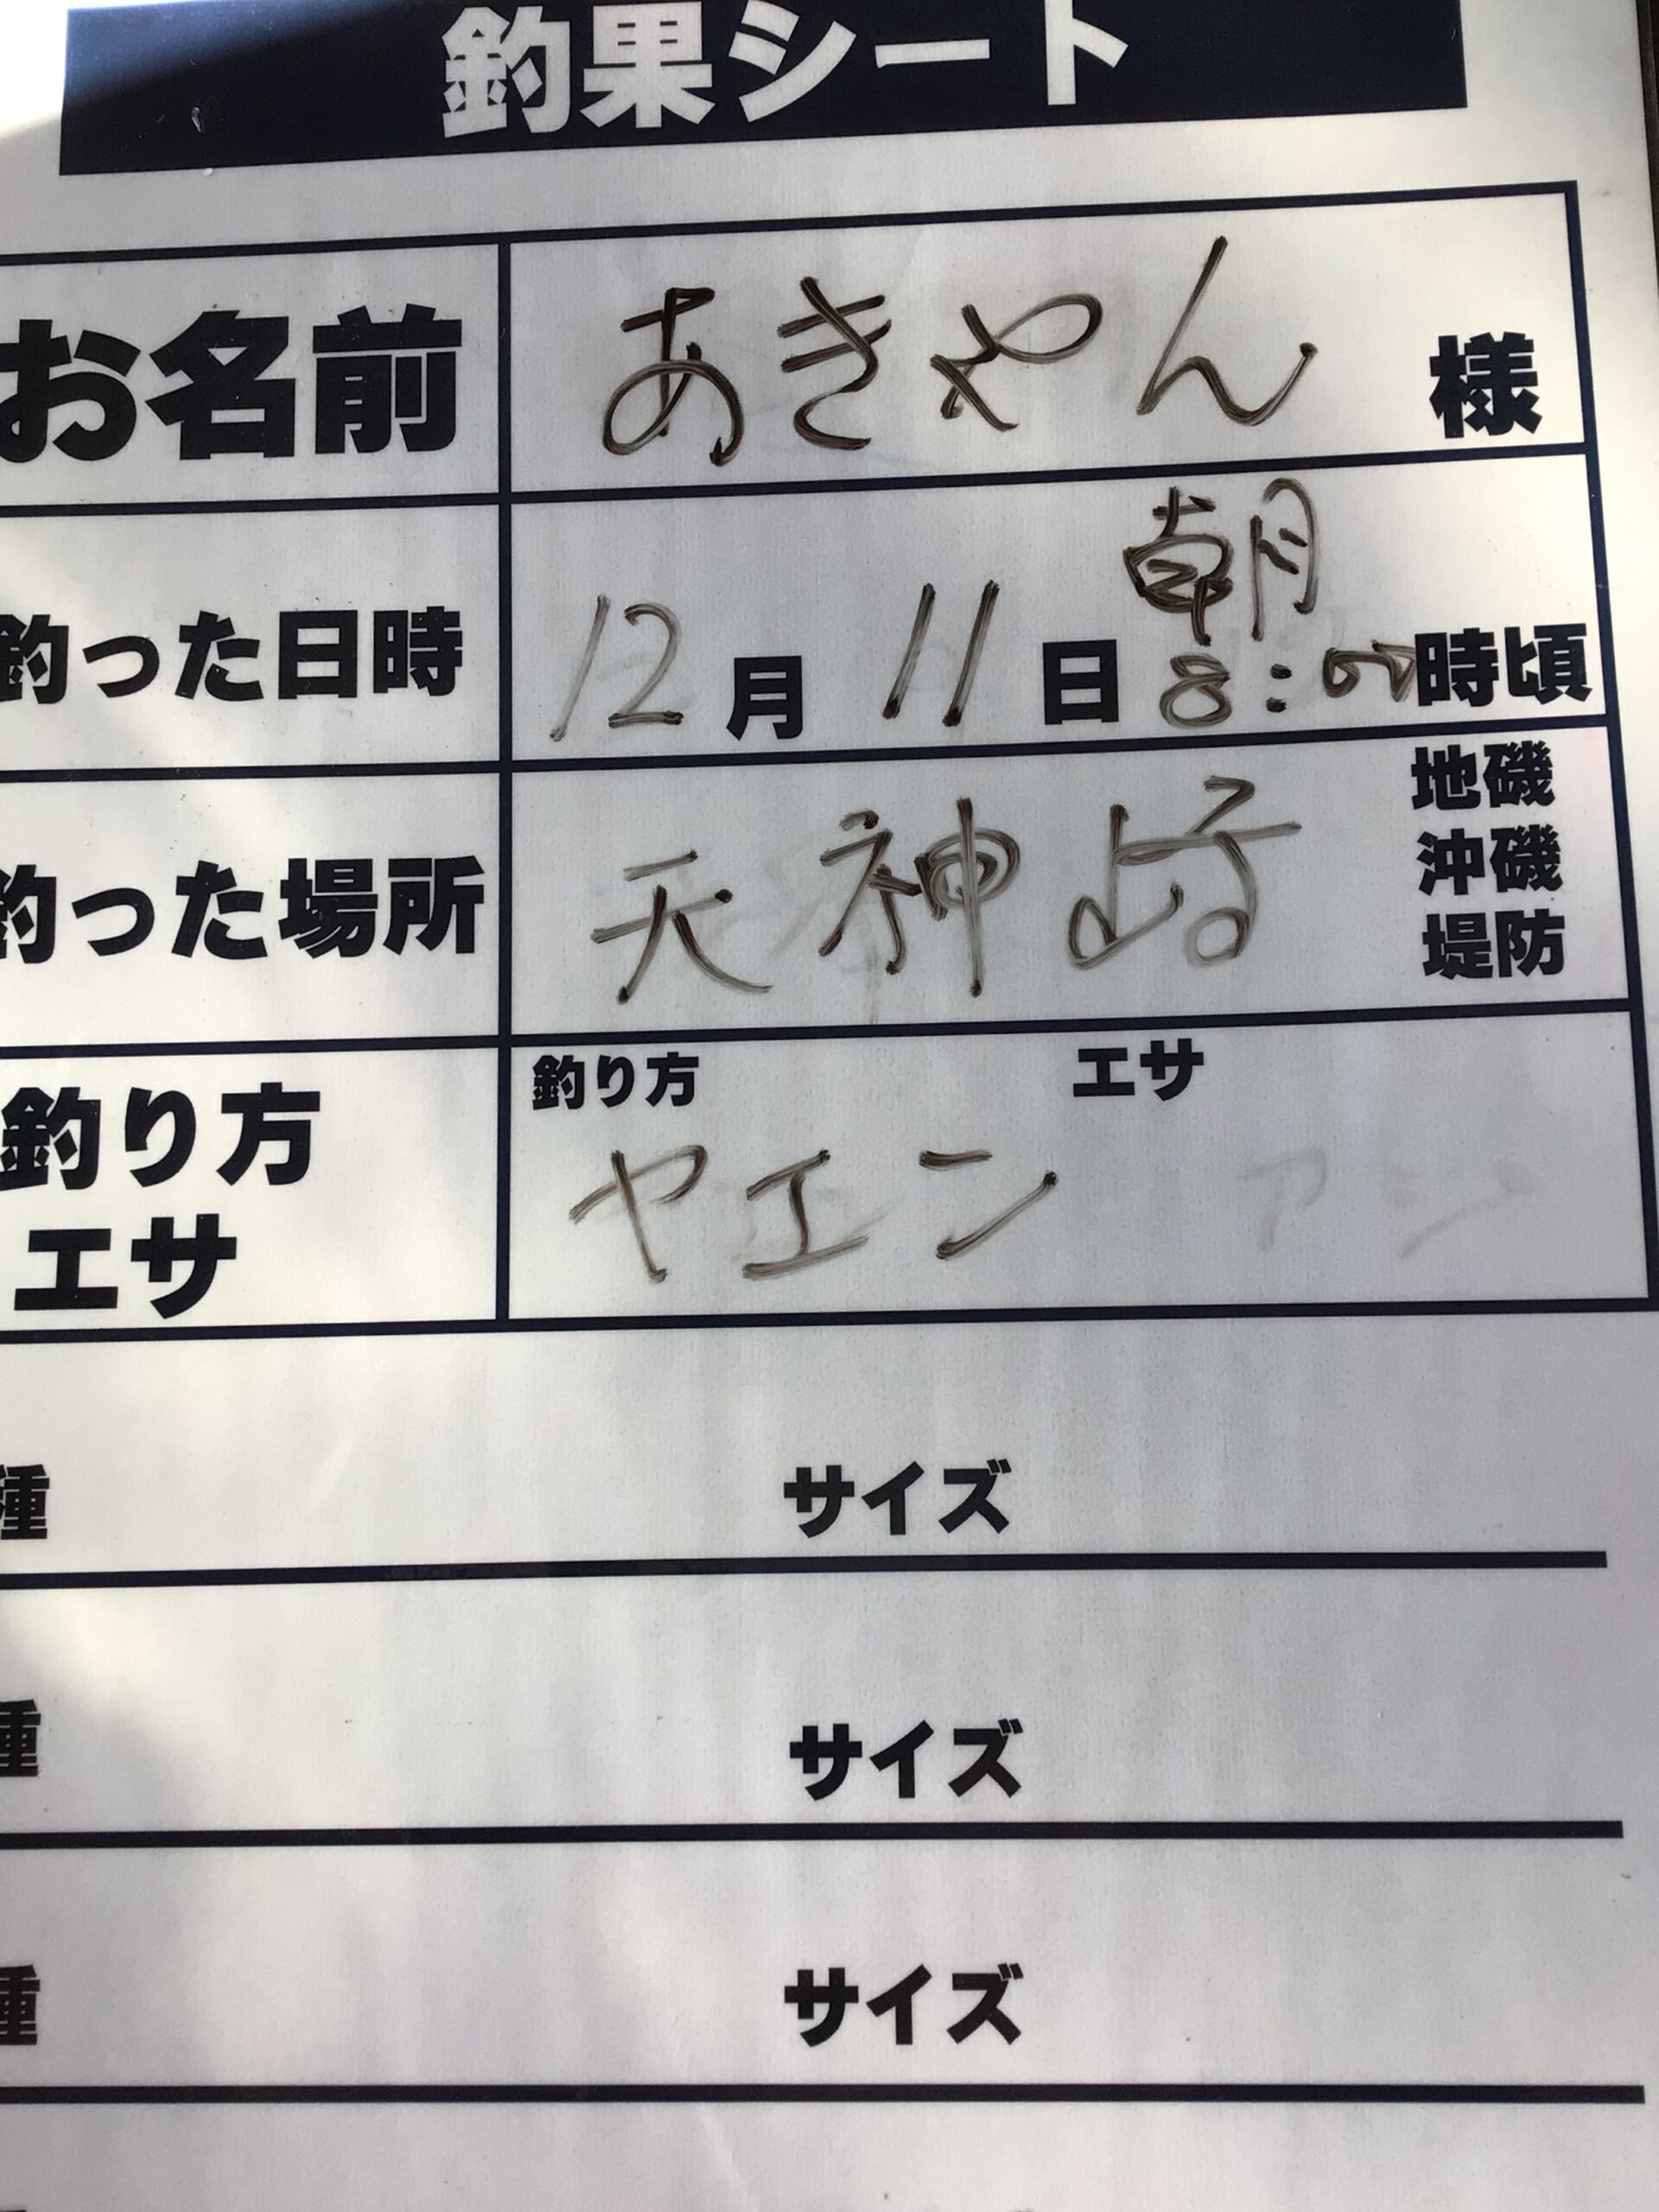 釣果シート
お名前 あきやん 様
釣った日時 12月11日 朝8:00時頃
釣った場所 天神崎 地磯 沖磯 堤防
釣り方 エサ
釣り方 ヤエン
エサ
種 サイズ
種 サイズ
種 サイズ